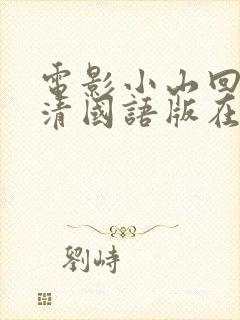 電影小山回
清國語版在
劉峙